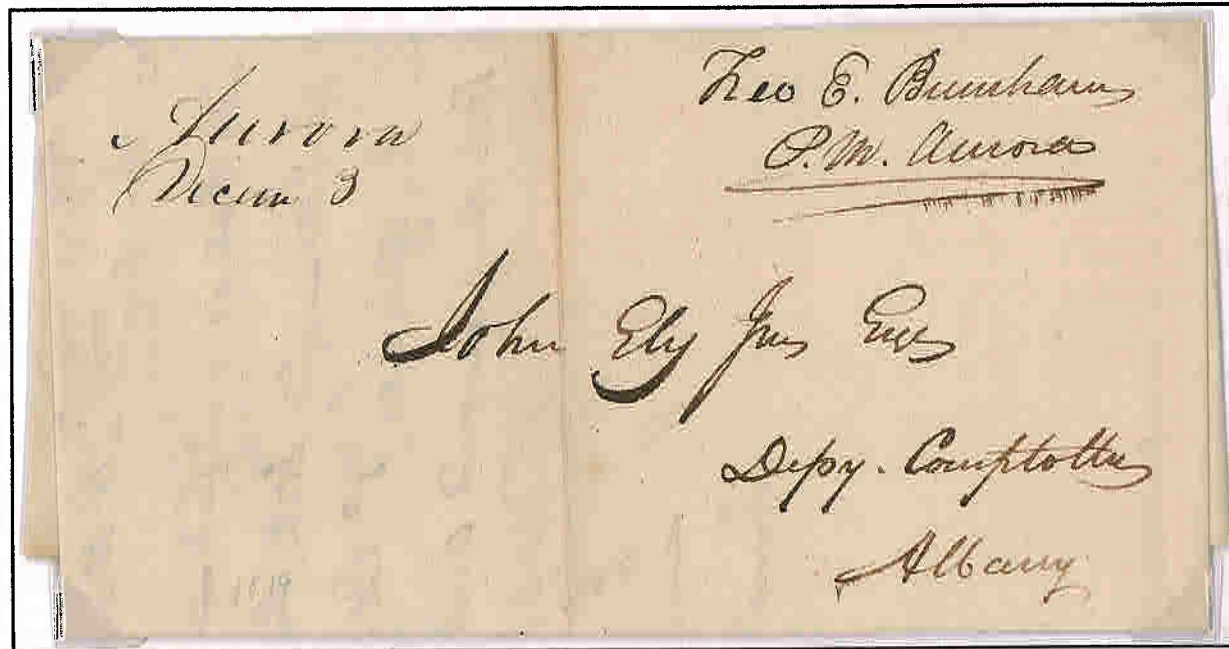 Aurora
Decem 3
Theo E. Burnham
P.M. Aurora
John Ely Jnr Esqr
Depy. Comptoller
Albany
1819